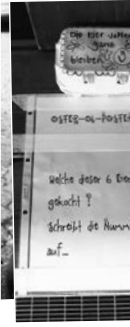 Die Eier
ganz
bleiben
OSTER-06-POSTEN
Welche dieser 6 Eier
gekocht ?
Schreibt die Numm
auf_